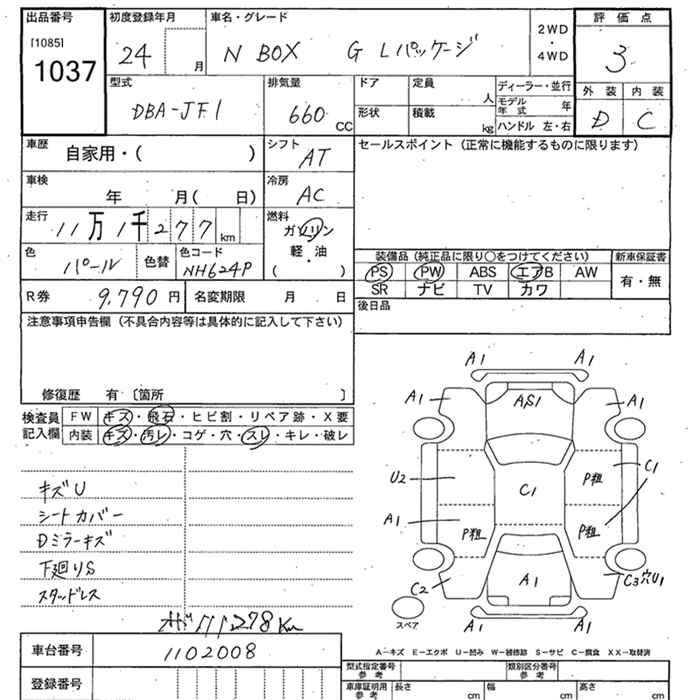 出品番号 初度登録年月 車名・グレード 2WD・4WD 評価点
[1085]
1037 24 月 N BOX G Lパッケージ 3
型式 排気量 ドア 定員 人 ディーラー・並行 外装 内装
DBA-JF1 660 cc 形状 積載 kg モデル年式 年 D C
ハンドル 左・右
車歴 自家用・( ) シフト AT セールスポイント (正常に機能するものに限ります)
車検 年 月( 日) 冷房 AC
走行 11万1千277km 燃料 ガソリン
色 パール 色替 色コード NH624P 軽・油 ( )
装備品 (純正品に限り○をつけてください) 新車保証書
PS PW ABS エアB AW 有・無
SR ナビ TV カワ
R券 9,790円 名変期限 月 日 後日品
注意事項申告欄 (不具合内容等は具体的に記入して下さい)
修復歴 有 〔箇所 〕
検査員記入欄 FW キズ・飛石・ヒビ割・リペア跡・X要
内装 キズ・汚レ・コゲ・穴・スレ・キレ・破レ
キズU
シートカバー
Dミラーキズ
下廻りS
スタッドレス
111278Km
A1 A1
A1 A,S1 A1
U2 C1 P粗 C1
A1 P粗 P粗
C2 A1 C3穴U1
スペア A1 A1
A-キズ E-エクボ U-凹み W-補修跡 S-サビ C-腐食 XX-取替済
車台番号 1102008
型式指定番号 参考 類別区分番号 参考
登録番号 車庫証明用 参考 長さ cm 幅 cm 高さ cm